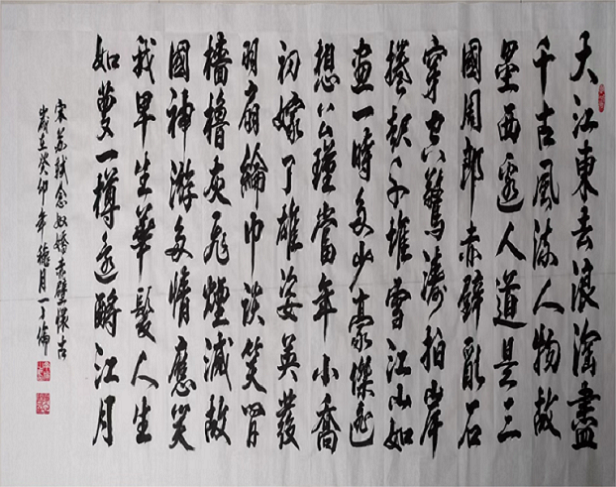 大江東去浪淘盡
千古風流人物故
壘西邊人道是三
國周郎赤壁亂石
穿空驚濤拍岸
捲起千堆雪江山如
畫一時多少豪傑遙
想公瑾當年小喬
初嫁了雄姿英發
羽扇綸巾談笑間
檣櫓灰飛煙滅故
國神游多情應笑
我早生華髮人生
如夢一樽還酹江月
宋蘇軾念奴嬌赤壁懷古
歲在癸卯年